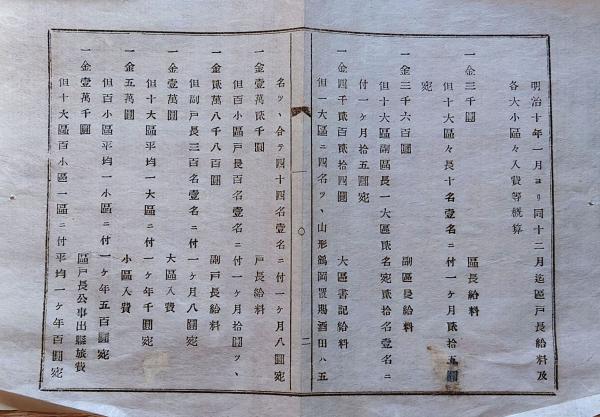 明治十年一月ヨリ同十二月迄區戸長給料及
各大小區々入費等概算
一金三千圓　區長給料
但十大區々長十名壹名ニ付一ヶ月貳拾五圓
宛
一金三千六百圓　副區長給料
但十大區副區長一大區貳名宛貳拾名壹名ニ
付一ヶ月拾五圓宛
一金四千貳百貳拾四圓　大區書記給料
但一大區ニ四名ツヽ山形鶴岡置賜酒田ハ五
一
二
名ツヽ合テ四十四名壹名ニ付一ヶ月八圓宛
一金壹萬貳千圓　戸長給料
但百小區戸長百名壹名ニ付一ヶ月拾圓ツヽ
一金貳萬八千八百圓　副戸長給料
但副戸長三百名壹名ニ付一ヶ月八圓宛
一金壹萬圓　大區入費
但十大區平均一大區ニ付一ヶ年千圓宛
一金五萬圓　小區入費
但百小區平均一小區ニ付一ヶ年五百圓宛
一金壹萬千圓　區戸長公事出縣旅費
但十大區百小區一區ニ付平均一ヶ年百圓宛